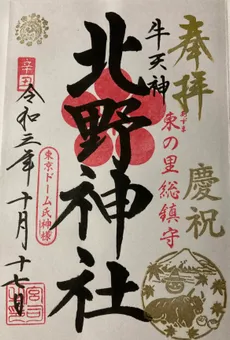 奉拝
慶祝
牛天神
あずま
東の里総鎮守
北野神社
東京ドーム氏神様
辛丑
令和三年十月十七日